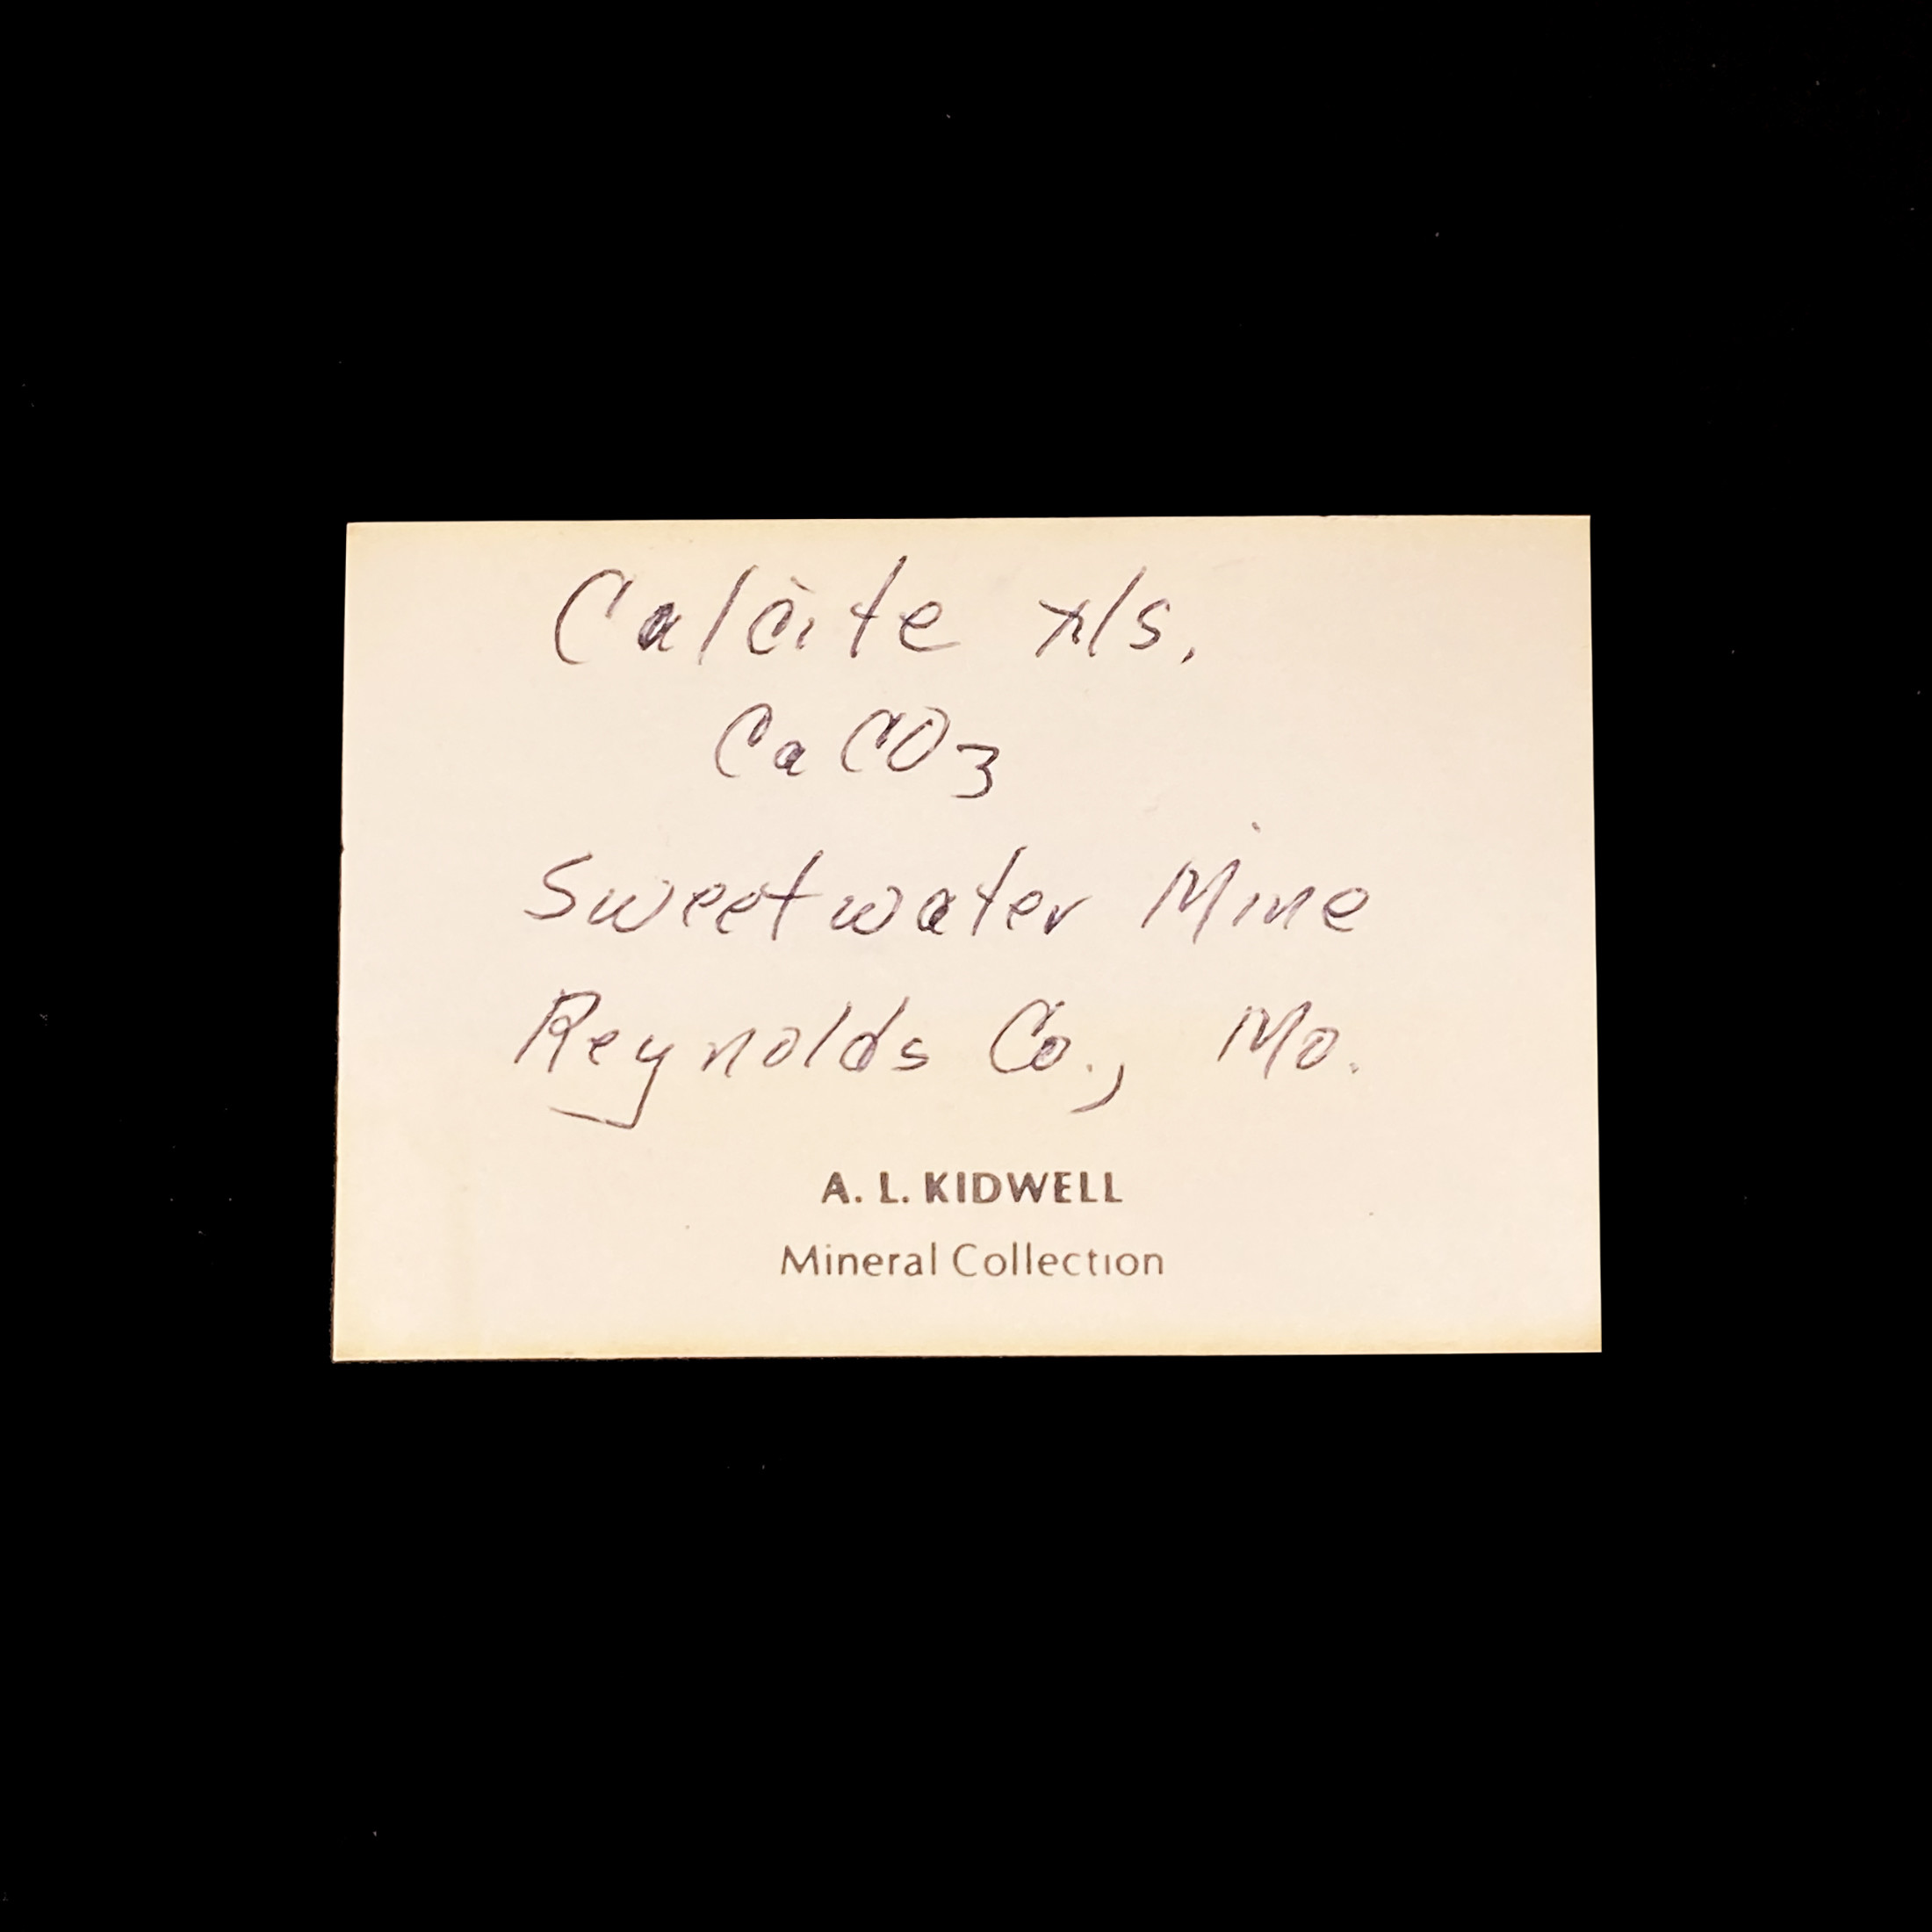 Calcite xls.
CaCO3
Sweetwater Mine
Reynolds Co., Mo.
A. L. KIDWELL
Mineral Collection